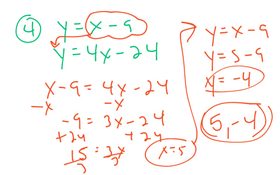 4
y = x - 9
y = 4x - 24
x - 9 = 4x - 24
-x -x
-9 = 3x - 24
+24 +24
15 = 3x
3 3
x = 5
y = x - 9
y = 5 - 9
y = -4
5, -4